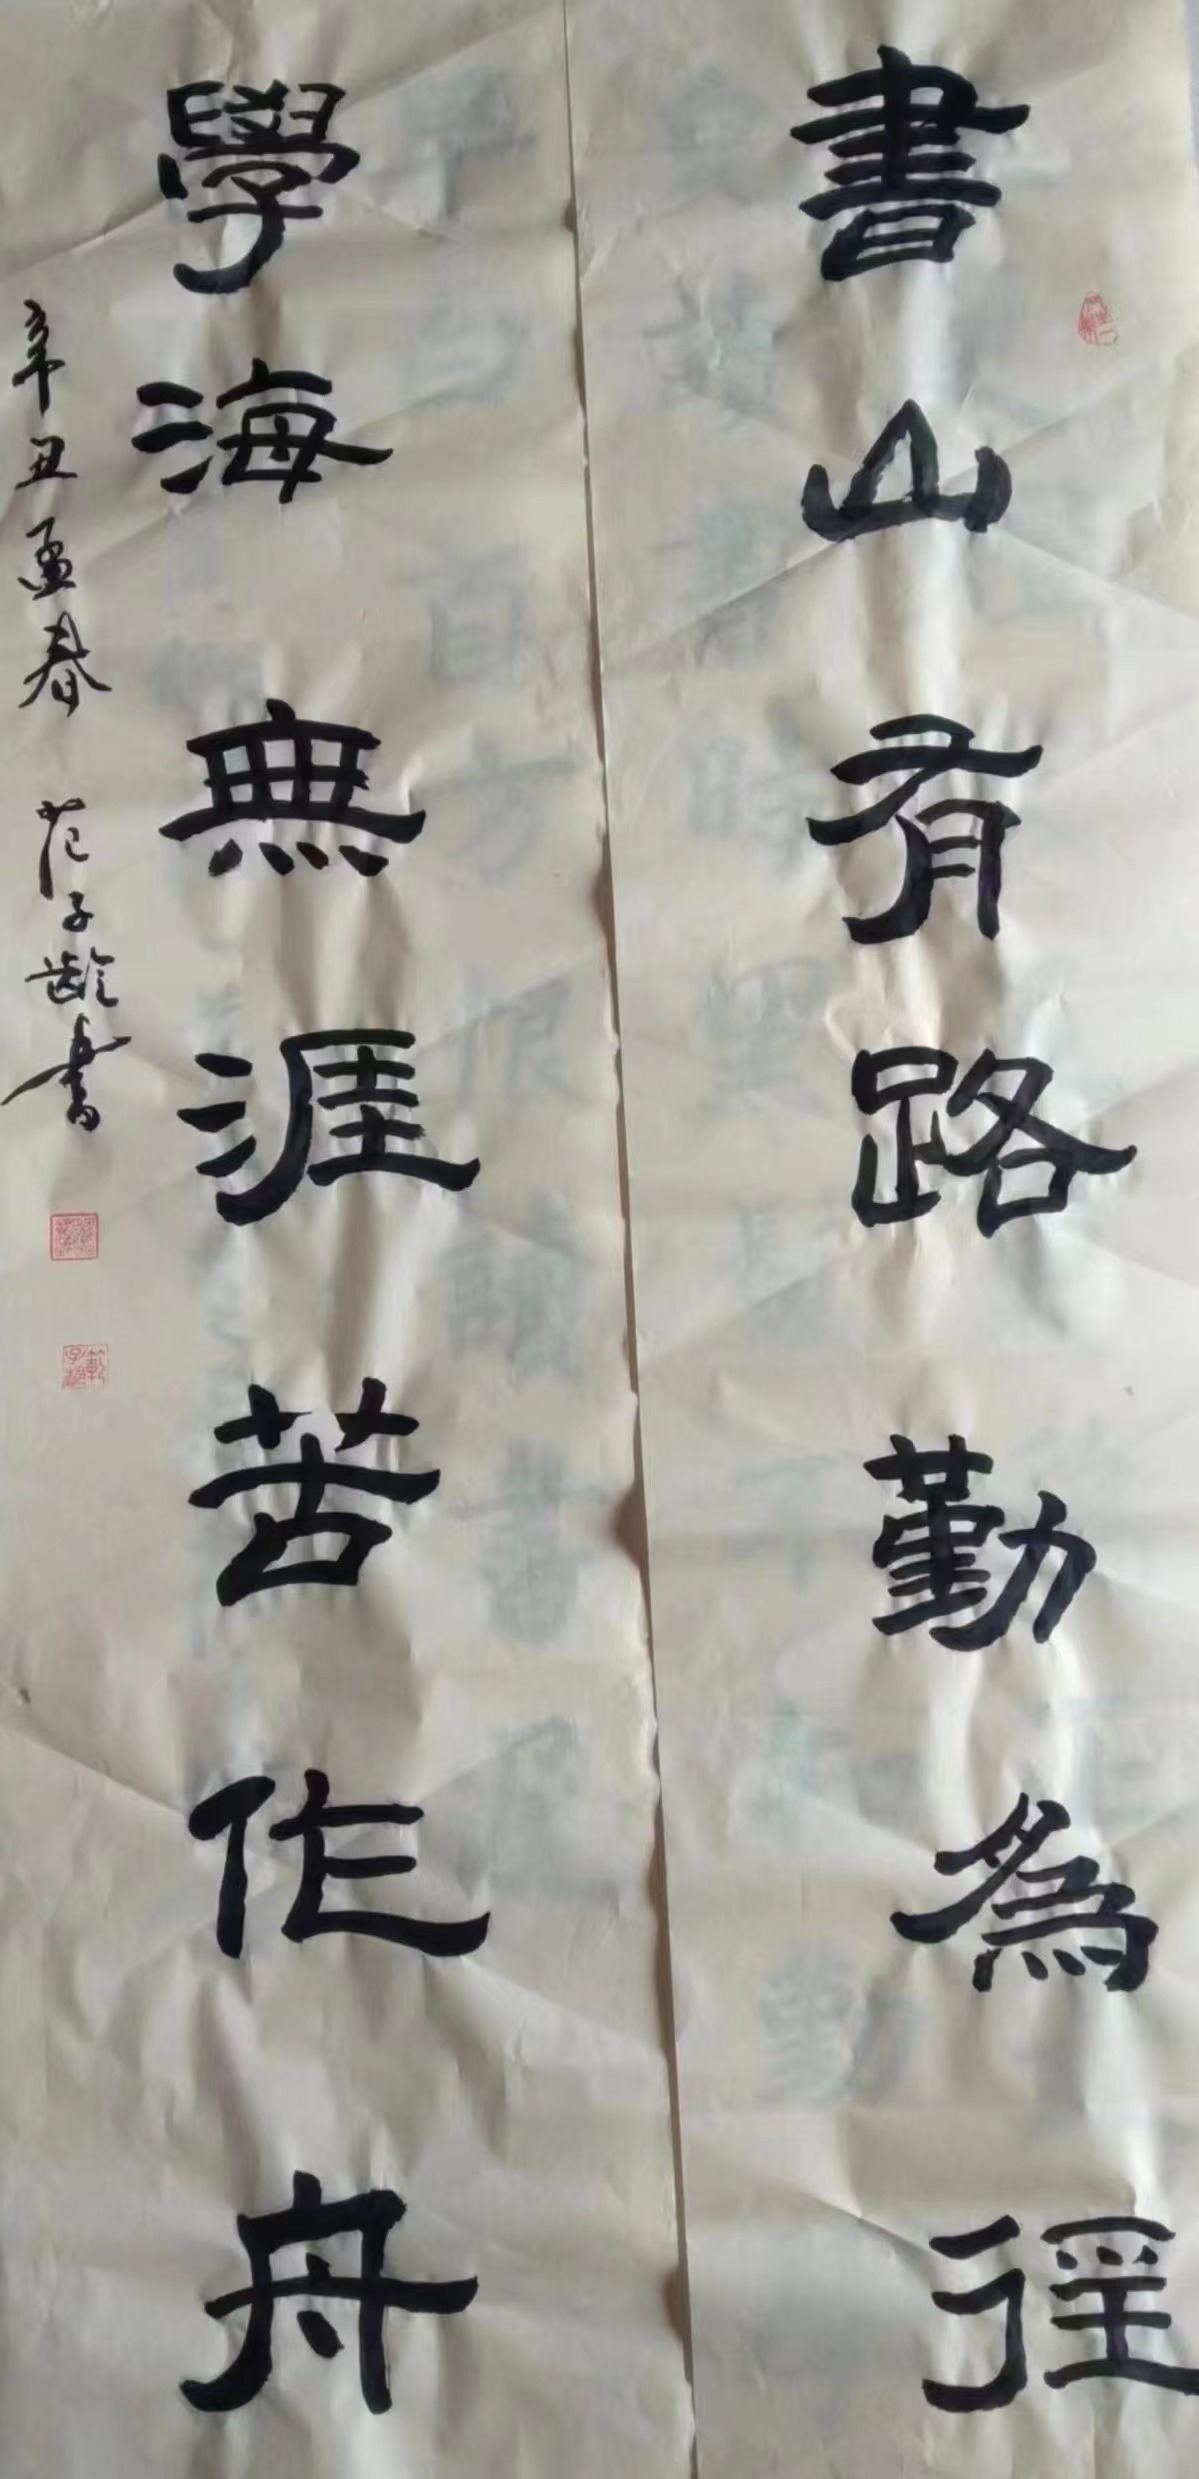 書山有路勤為徑
學海無涯苦作舟
辛丑孟春 范子龄書